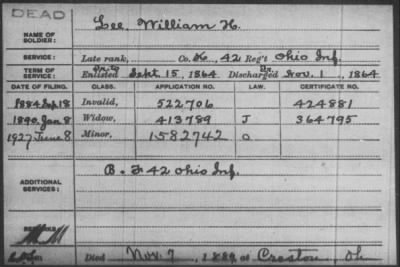 DEAD
NAME OF SOLDIER: Lee, William H.
SERVICE: Late rank, Co. K, 42 Reg't Ohio Inf.
TERM OF SERVICE: Enlisted Sept. 15, 1864 Discharged Nov. 1, 1864
DATE OF FILING. CLASS. APPLICATION NO. LAW. CERTIFICATE NO.
1884 Sep 18 Invalid, 522706 424881
1890 Jan 8 Widow, 413789 J 364795
1927 June 8 Minor, 1582742 O
ADDITIONAL SERVICES: B. F 42 Ohio Inf.
Died Nov. 7, 1889 at Creston, Oh